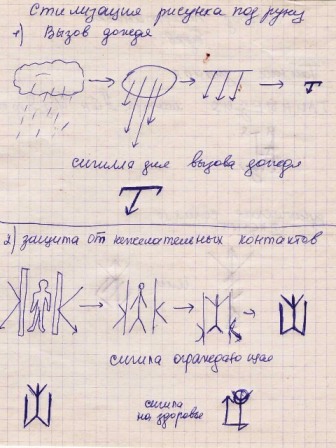 Стилизация рисунка под руну
1) Вызов дождя
сигилла для вызова дождя
2) защита от нежелательных контактов
сигила ограждающая
сигила
на здоровье